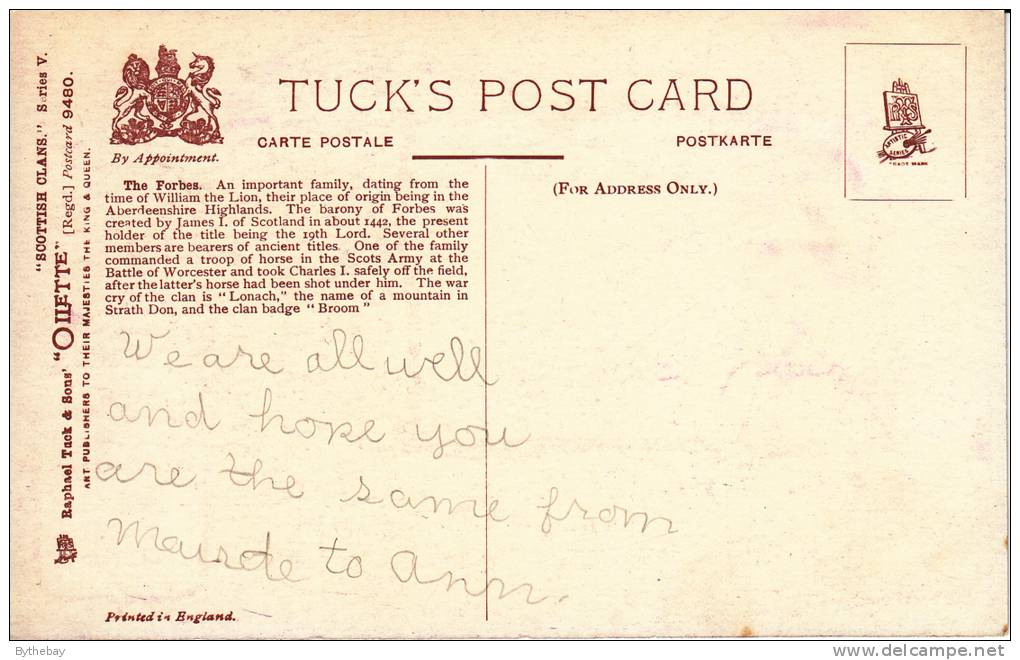 TUCK'S POST CARD
CARTE POSTALE
POSTKARTE
By Appointment.
(FOR ADDRESS ONLY.)
The Forbes. An important family, dating from the
time of William the Lion, their place of origin being in the
Aberdeenshire Highlands. The barony of Forbes was
created by James I. of Scotland in about 1442, the present
holder of the title being the 19th Lord. Several other
members are bearers of ancient titles. One of the family
commanded a troop of horse in the Scots Army at the
Battle of Worcester and took Charles I. safely off the field,
after the latter's horse had been shot under him. The war
cry of the clan is "Lonach," the name of a mountain in
Strath Don, and the clan badge "Broom"
We are all well
and hope you
are the same from
to Ann.
Printed in England.
"SCOTTISH CLANS." Series V.
Raphael Tuck & Sons' "OILETTE" [Regd.] Postcard 9480.
ART PUBLISHERS TO THEIR MAJESTIES THE KING & QUEEN.
ARTISTIC
SERIES
TRADE MARK
Bythebay
delcampe.net